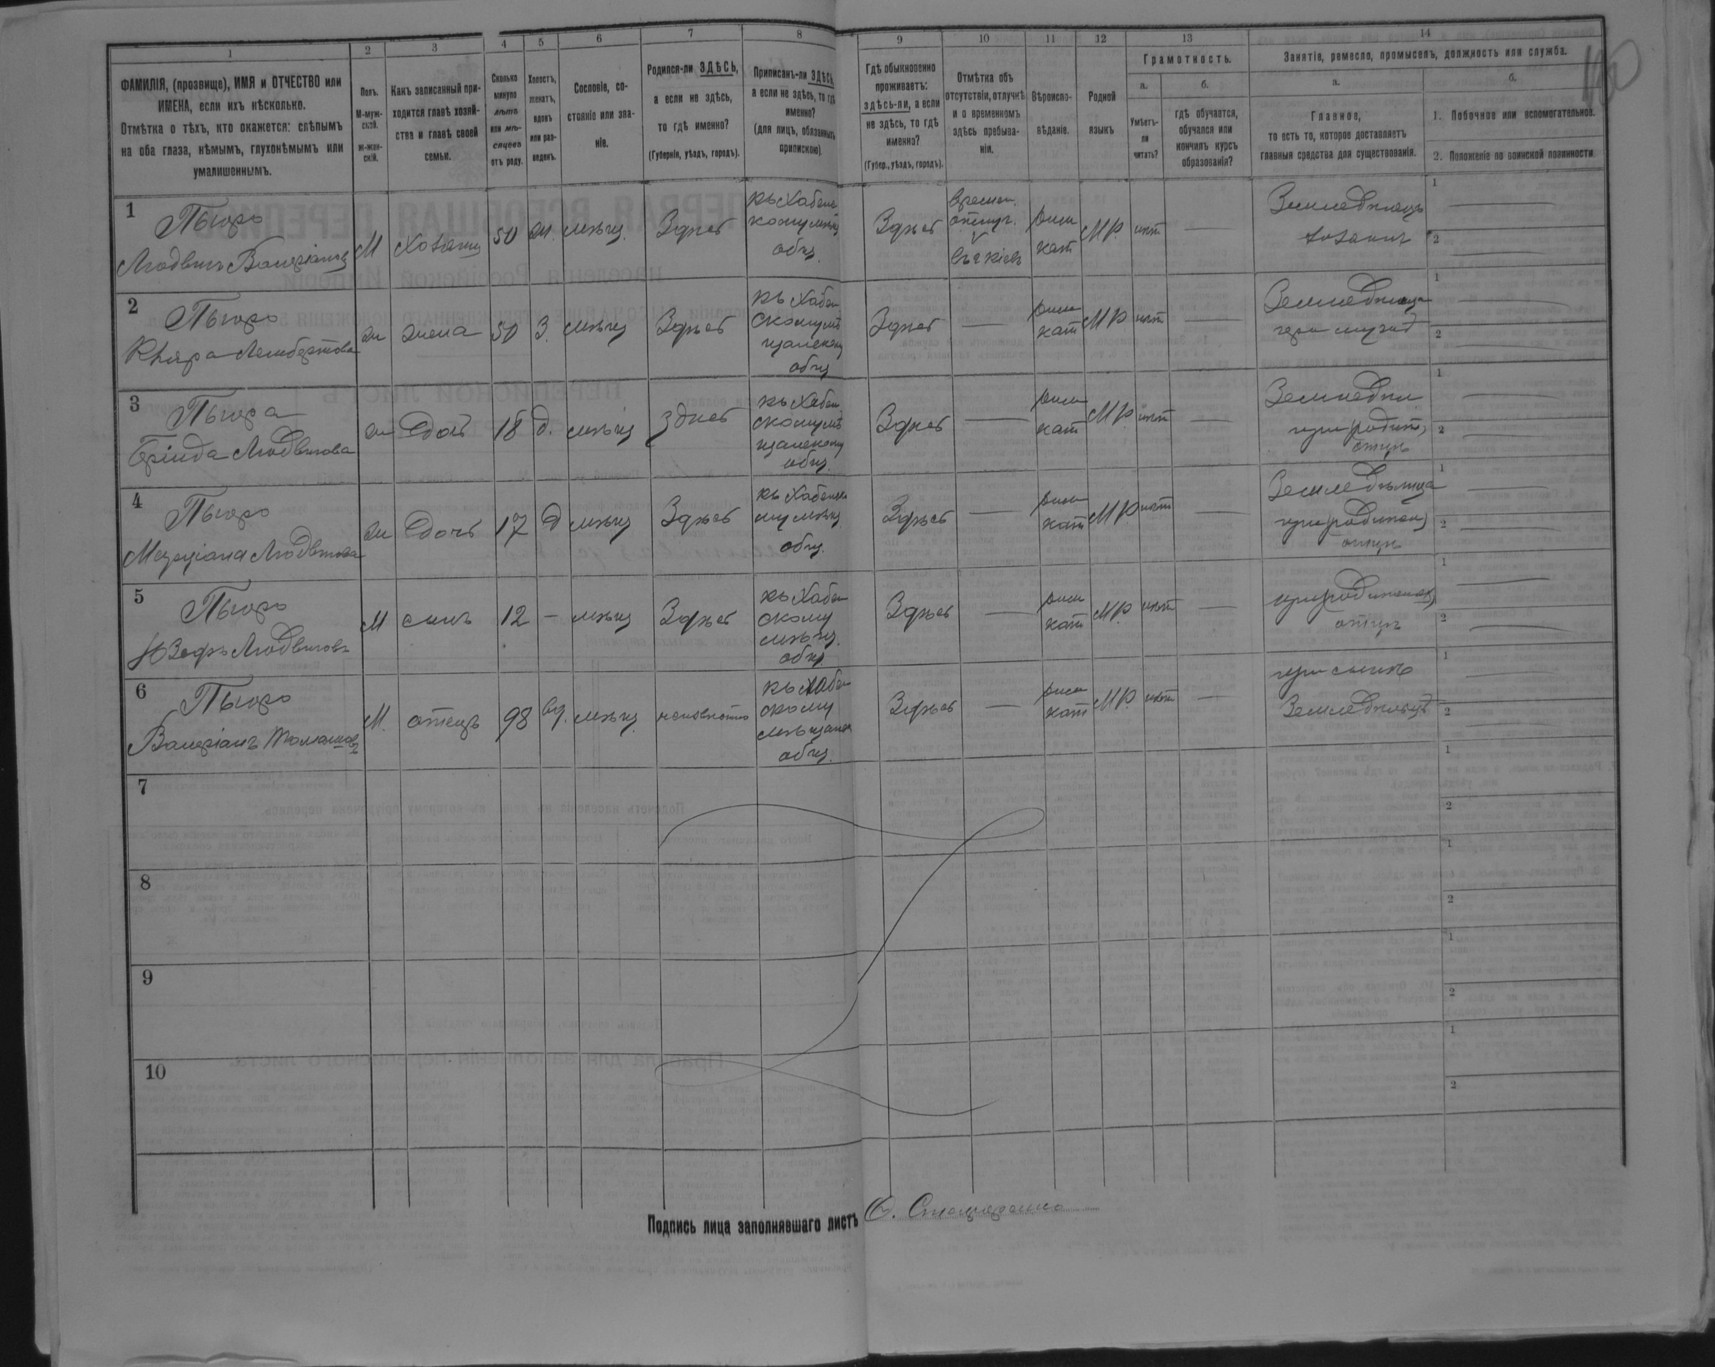 1 2 3 4 5 6 7 8 9 10 11 12 13 14
ФАМИЛІЯ, (прозвище), ИМЯ и ОТЧЕСТВО или
ИМЕНА, если ихъ нѣсколько.
Отмѣтка о тѣхъ, кто окажется: слѣпымъ
на оба глаза, нѣмымъ, глухонѣмымъ или
умалишеннымъ.
Полъ.
М-муж-
ской.
ж-жен-
скій.
Какъ записанный при-
ходится главѣ хозяй-
ства и главѣ своей
семьи.
Сколько
минуло
лѣтъ
или мѣ-
сяцевъ
отъ роду.
Холостъ,
женатъ,
вдовъ
или раз-
веденъ.
Сословіе, со-
стояніе или зва-
ніе.
Родился-ли ЗДѢСЬ,
а если не здѣсь,
то гдѣ именно?
(Губернія, уѣздъ, городъ).
Приписанъ-ли ЗДѢСЬ,
а если не здѣсь, то гдѣ
именно?
(для лицъ, обязанныхъ
припискою)
Гдѣ обыкновенно
проживаетъ:
здѣсь-ли, а если
не здѣсь, то гдѣ
именно?
(Губер., уѣздъ, городъ).
Отмѣтка объ
отсутствіи, отлучкѣ
и о временномъ
здѣсь пребыва-
ніи.
Вѣроиспо-
вѣданіе.
Родной
языкъ
Грамотность.
а.
Умѣетъ-
ли
читать?
б.
гдѣ обучается,
обучался или
кончилъ курсъ
образованія?
Занятіе, ремесло, промыселъ, должность или служба.
а.
Главное,
то есть то, которое доставляетъ
главныя средства для существованія.
б.
1. Побочное или вспомогательное.
2. Положеніе по воинской повинности
1
Пьюро
Людвигъ Валеріановъ
М хозяинъ 50 ж. мѣщ. Здѣсь
къ Хабен
скому мѣщ
общ.
Здѣсь
времен.
отлуч.
въ г Кіевъ
рим
кат
МР нѣт —
Земледѣлецъ
хозяинъ
1
2
2
Пьюро
Клара Ламбертова
ж жена 50 З. мѣщ Здѣсь
къ Хабен
скому мѣ
щанском
общ
Здѣсь —
рим
кат
МР нѣт —
Земледѣлица
при мужѣ
1
2
3
Пьюро
Людвигова
ж дочь 18 д. мѣщ Здѣсь
къ Хабен
скому мѣ
щанскому
общ.
Здѣсь —
рим
кат
МР нѣт —
при родит,
отцѣ
1
2
4
Пьюро
Людвигова
ж дочь 17 д мѣщ Здѣсь
къ Хабенско
му мѣщ.
общ.
Здѣсь —
рим
кат
МР нѣт —
Земледѣлица
отцѣ
1
2
5
Пьюро
Юзефъ Людвиговъ
М сынъ 12 — мѣщ Здѣсь
къ Хабен
скому
мѣщ.
общ
Здѣсь —
рим
кат
МР нѣт —
отцѣ
1
2
6
Пьюро
Валеріанъ Томашовъ
М. отецъ 98 вд. мѣщ. неизвѣстно
къ Хабен
скому
мѣщанс
общ.
Здѣсь —
рим
кат
МР нѣт —
при сынѣ
Земледѣльцѣ
1
2
7
1
2
8
1
2
9
1
2
10
1
2
Подпись лица заполнявшаго листъ